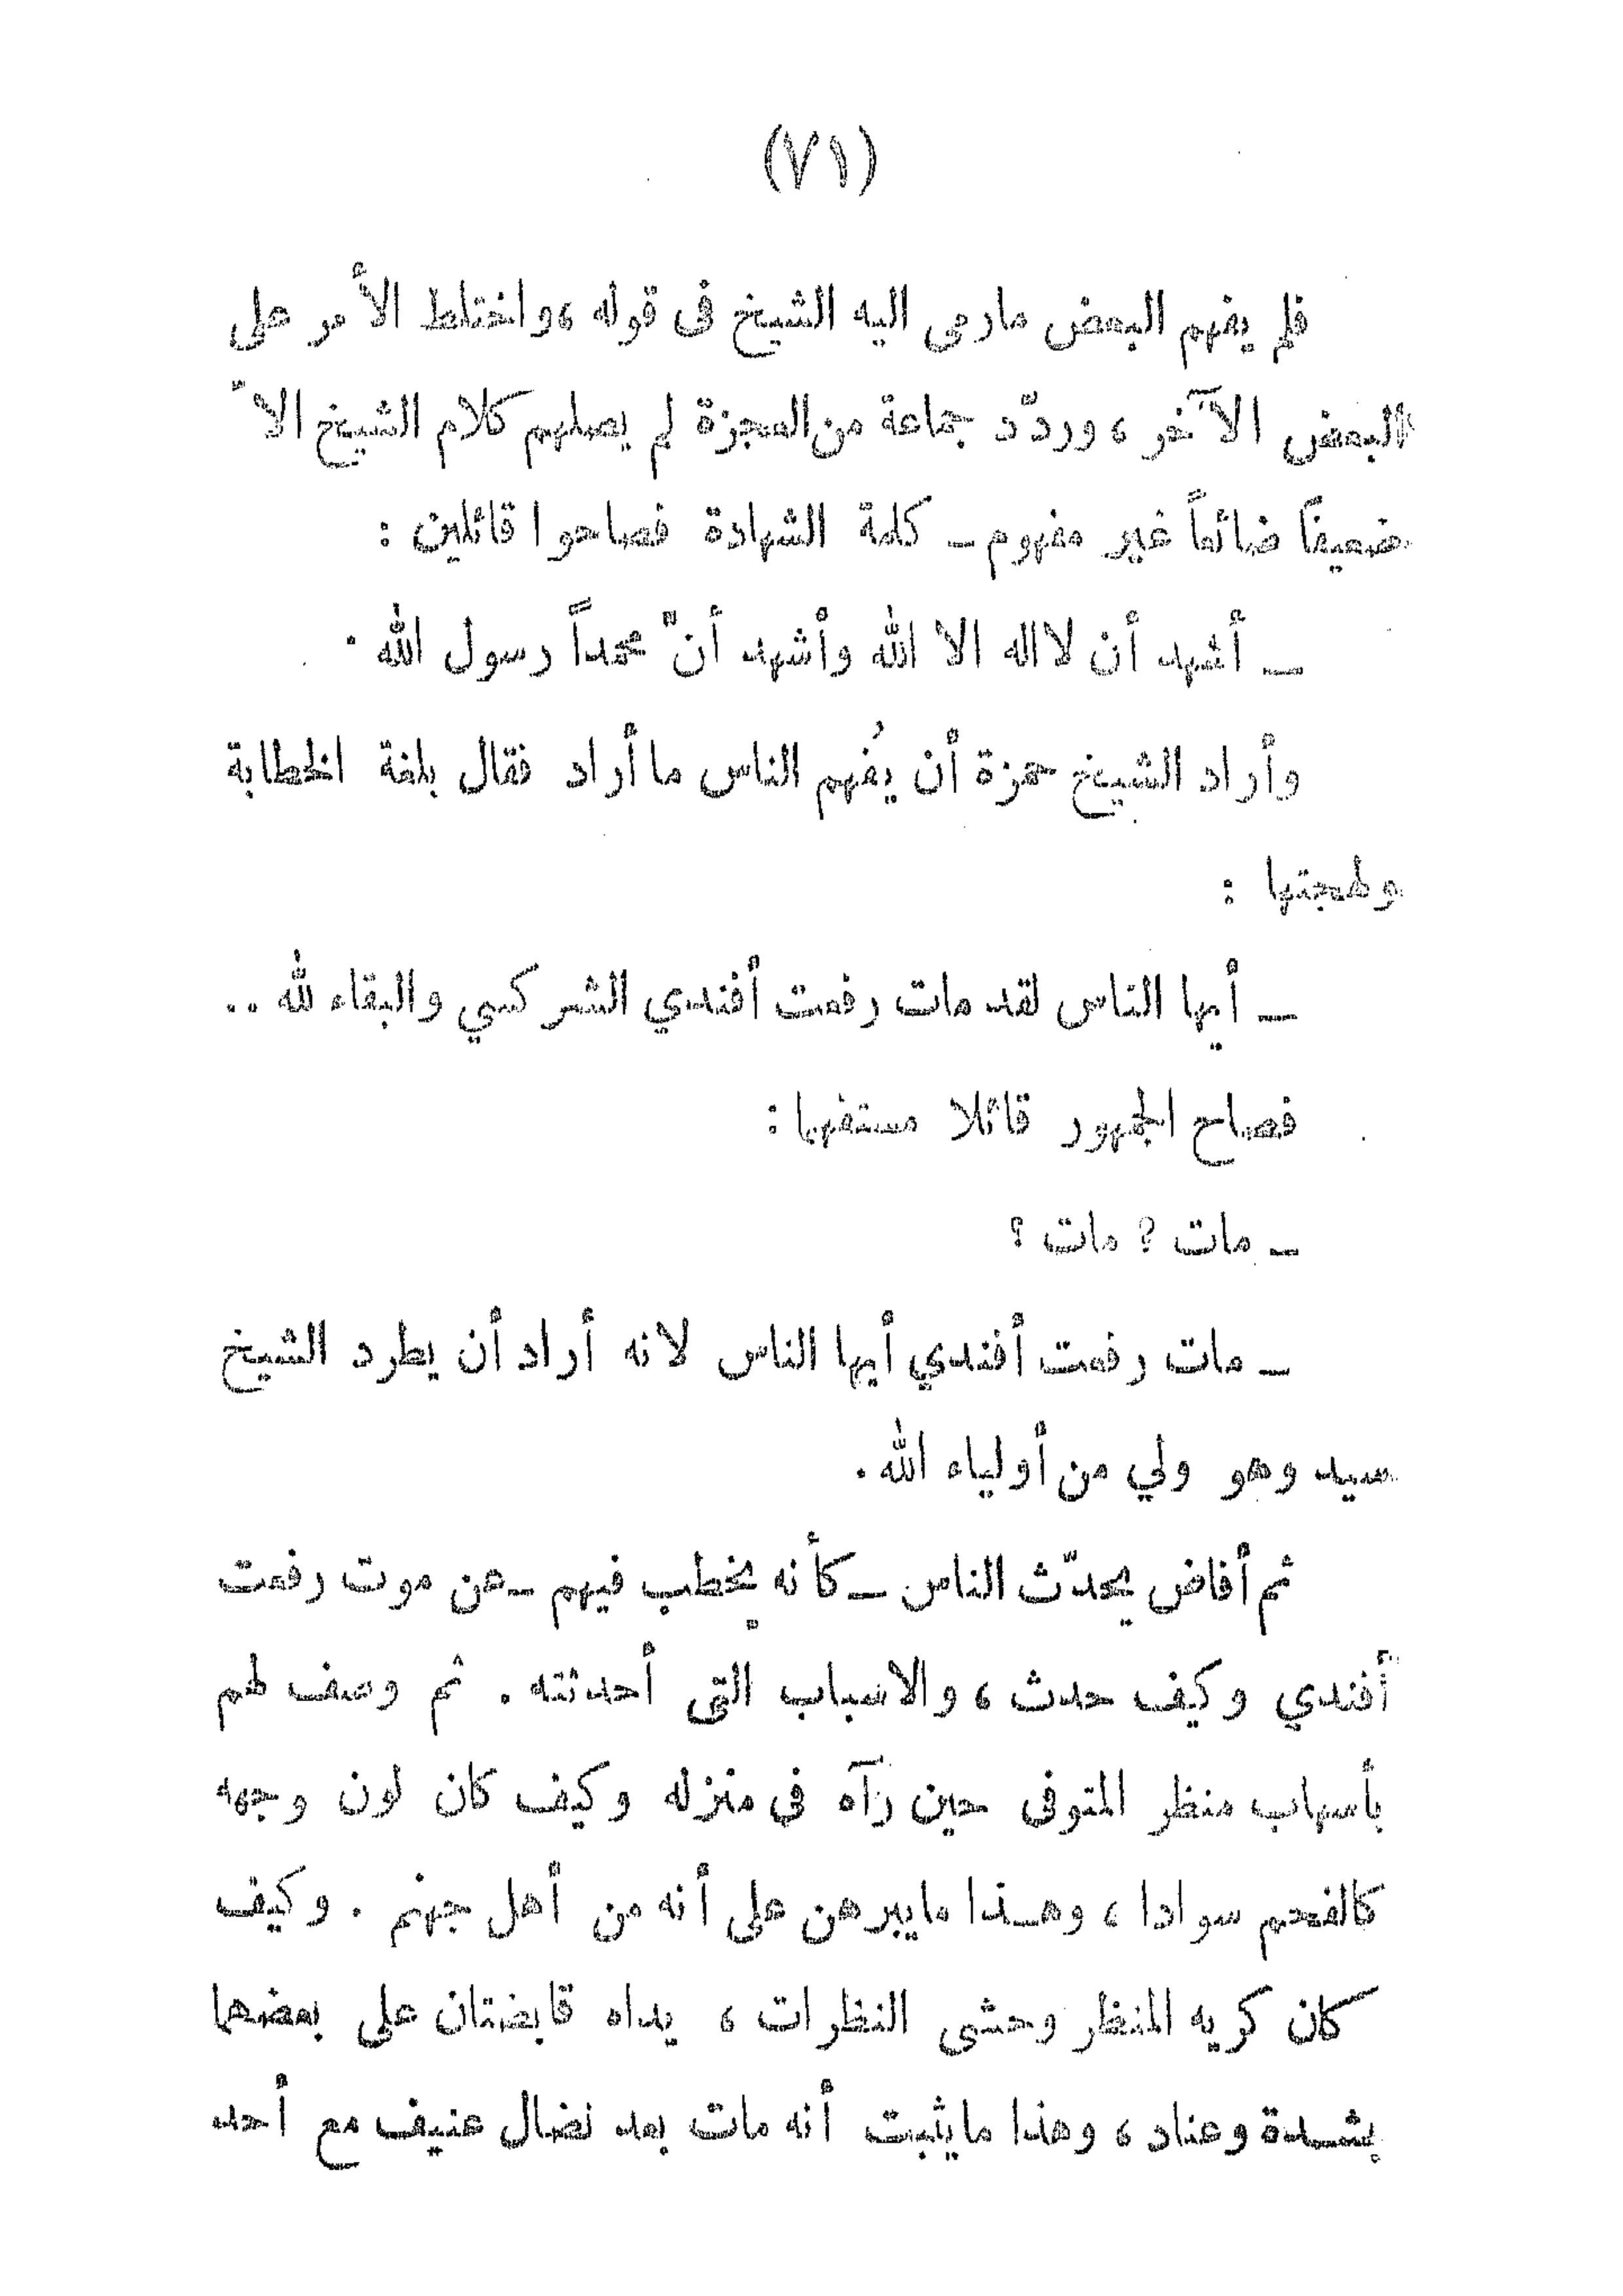 (٧١)
فلم يفهم البعض مارمى اليه الشيخ فى قوله ، واختلط الأمر على
البعض الآخر ، وردّد جماعة من العجزة لم يصلهم كلام الشيخ الاّ
ضعيفاً ضائعاً غير مفهوم ــ كلمة الشهادة فصاحوا قائلين :
ــ أشهد أن لااله الا الله وأشهد أنّ محمداً رسول الله .
وأراد الشيخ حمزة أن يُفهم الناس ما أراد فقال بلغة الخطابة
ولهجتها :
ــ أيها الناس لقد مات رفعت أفندي الشركسي والبقاء لله ..
فصاح الجمهور قائلا مستفهما :
ــ مات ؟ مات ؟
ــ مات رفعت أفندي أيها الناس لانه أراد أن يطرد الشيخ
سيد وهو ولي من أولياء الله .
ثم أفاض يحدّث الناس ــ كأنه يخطب فيهم ــ عن موت رفعت
أفندي وكيف حدث ، والاسباب التى أحدثته . ثم وصف لهم
بأسهاب منظر المتوفى حين رآه فى منزله وكيف كان لون وجهه
كالفحم سوادا ، وهـذا مايبرهن على أنه من أهل جهنم . وكيف
كان كريه المنظر وحشى النظرات ، يداه قابضتان على بعضهما
بشـدة وعناد ، وهذا مايثبت أنه مات بعد نضال عنيف مع أحد